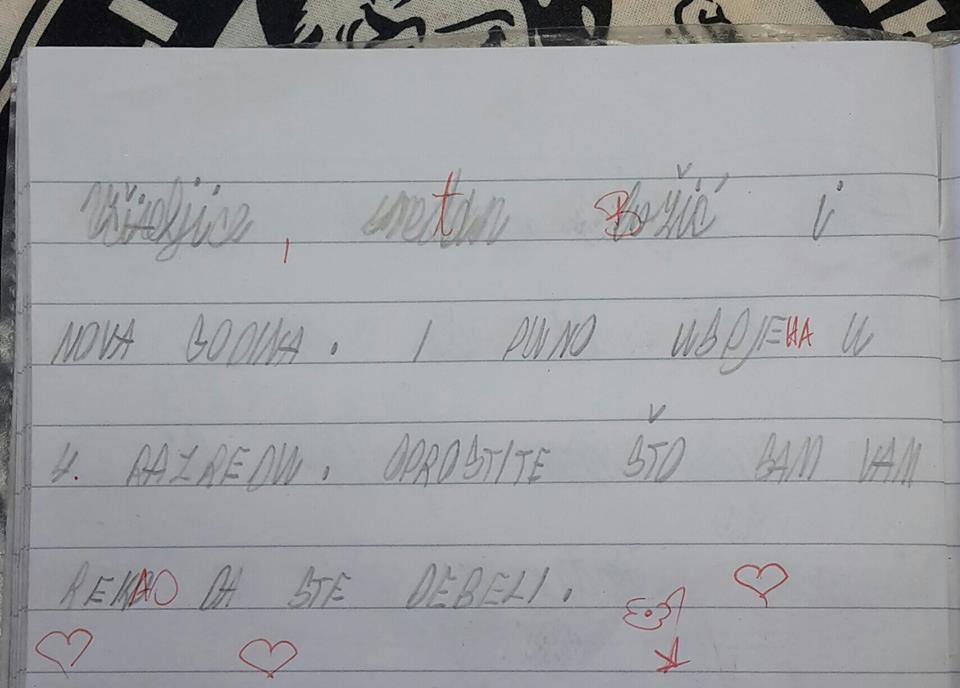 Učiteljice, sretan Božić i
NOVA GODINA. I PUNO USPJEHA U
4. RAZREDU. OPROSTITE ŠTO SAM VAM
REKAO DA STE DEBELI.